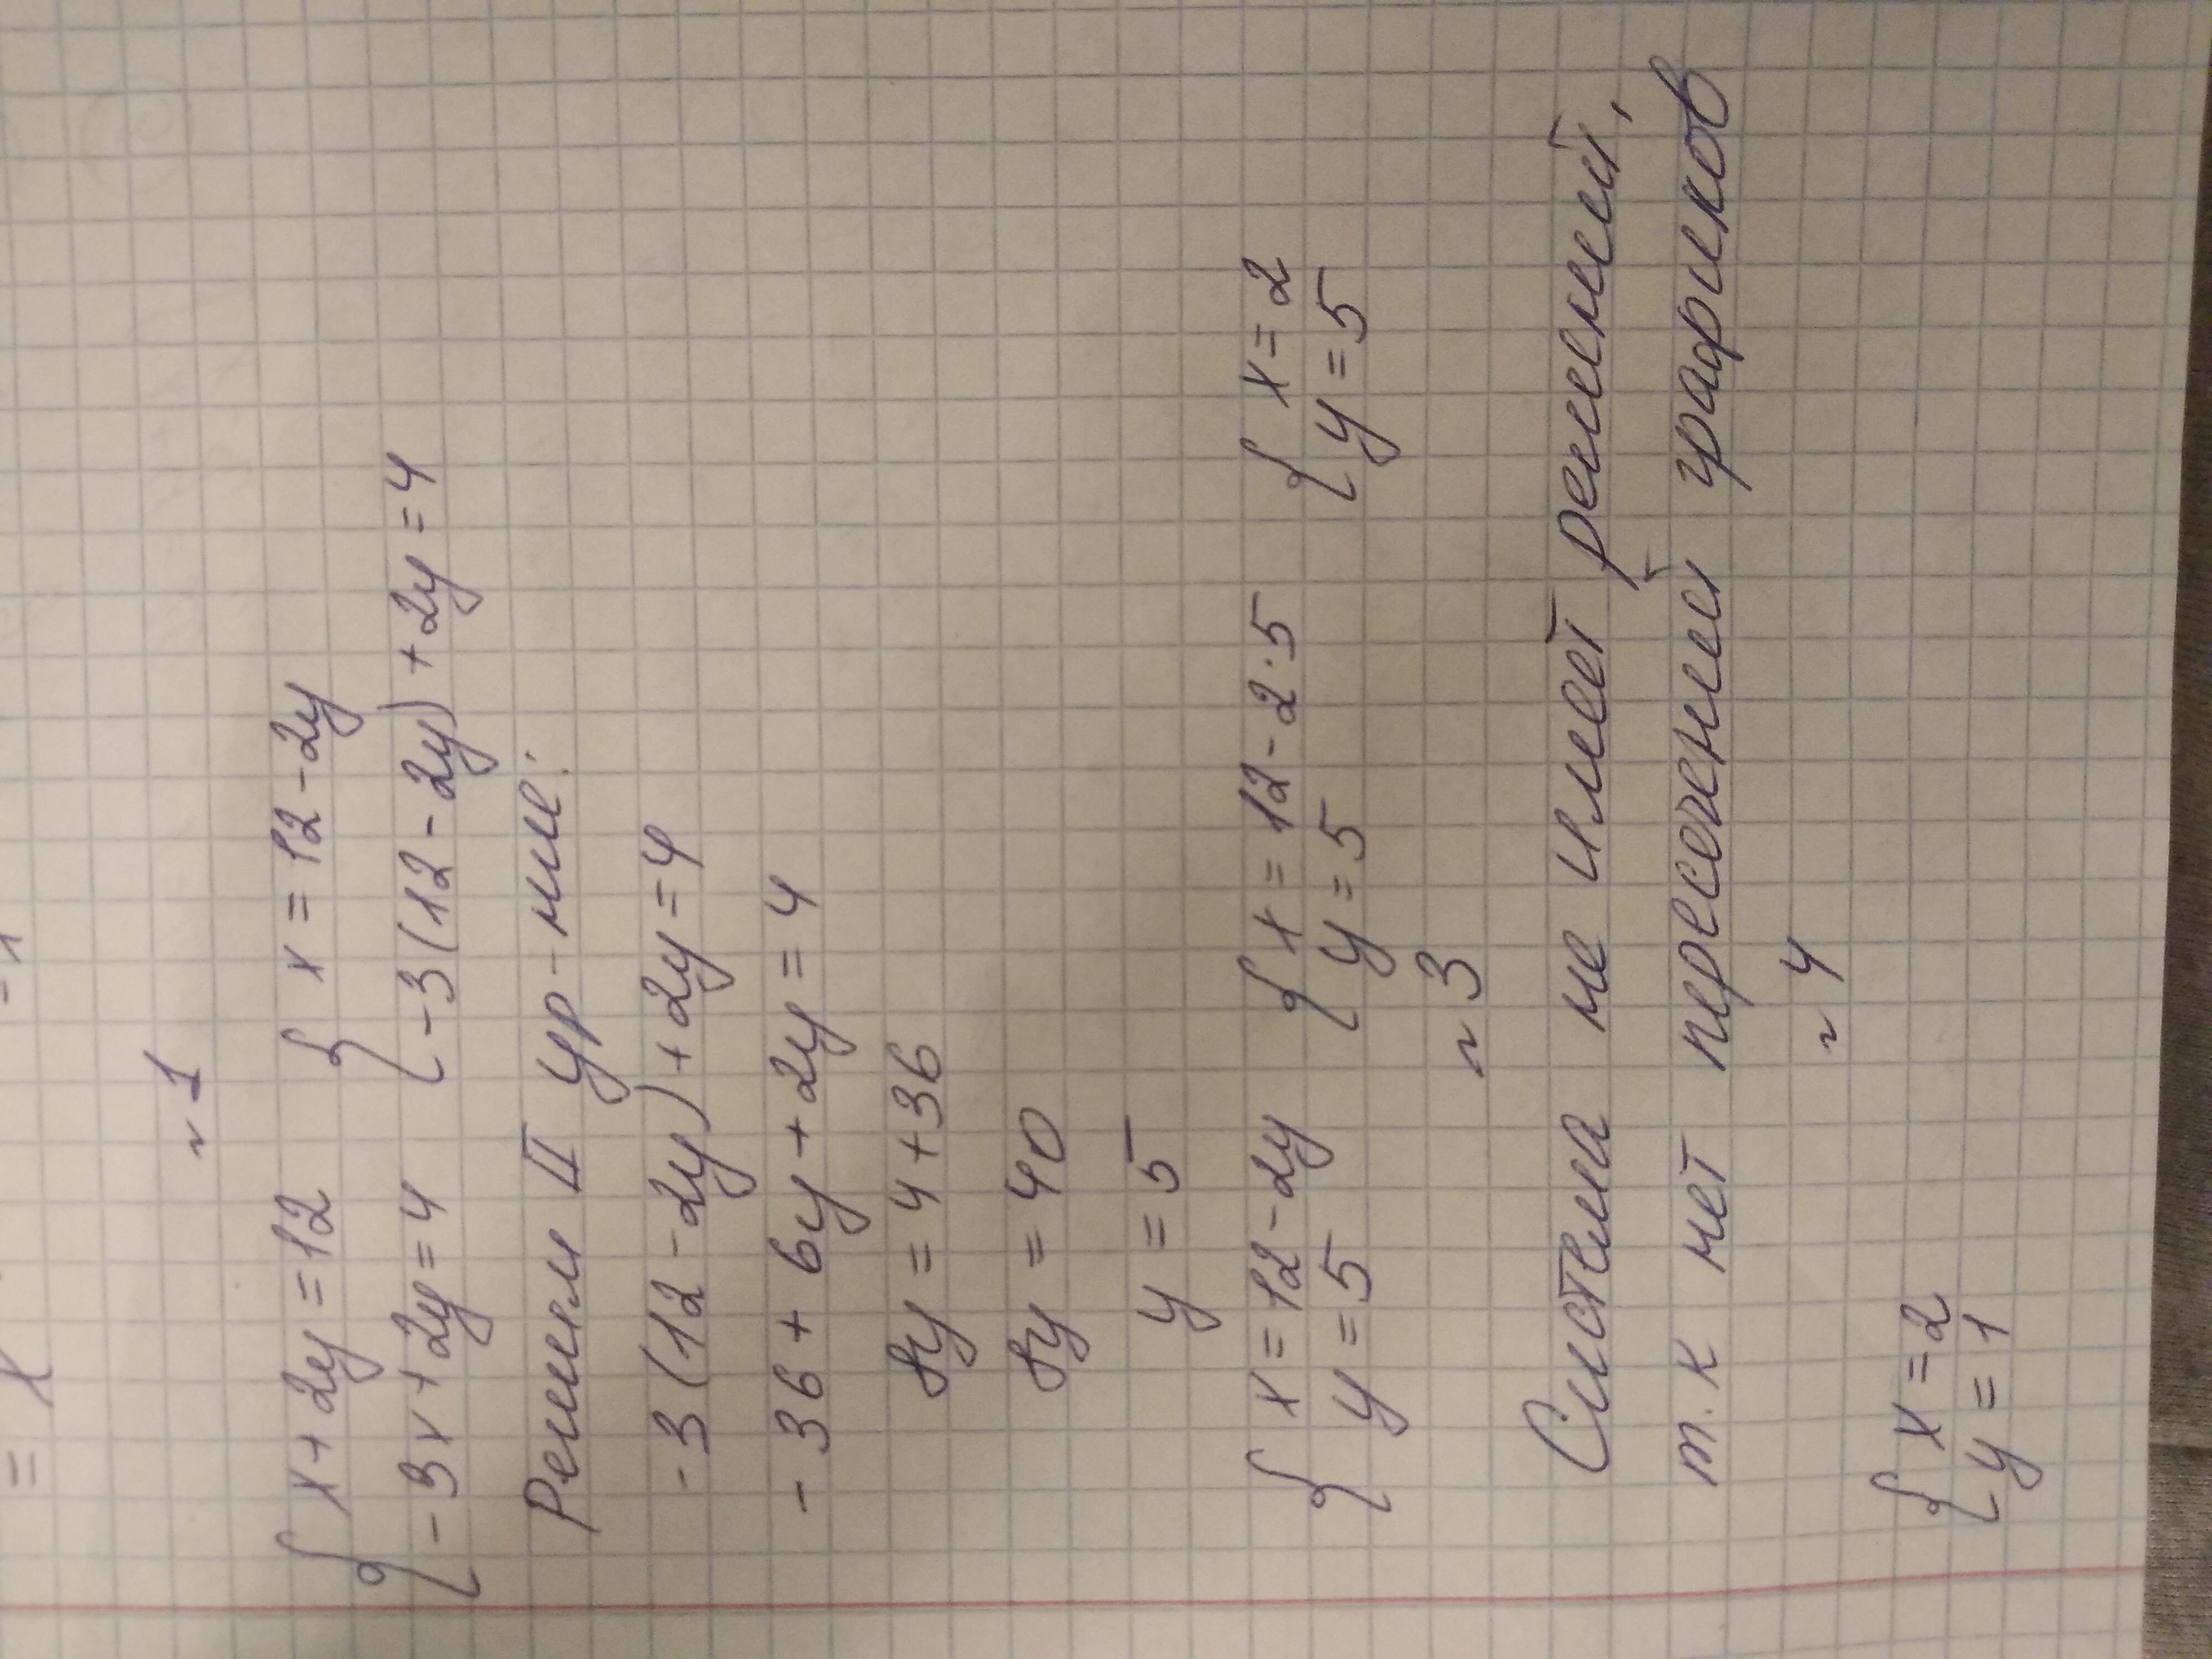 ~1
{x+2y=12 {x=12-2y
{-3x+2y=4 {-3(12-2y)+2y=4
Решим II ур-ние:
-3(12-2y)+2y=4
-36+6y+2y=4
8y=4+36
8y=40
y=5
{x=12-2y {x=12-2·5 {x=2
{y=5 {y=5 {y=5
~3
Система не имеет решений,
т.к нет пересечений графиков
~4
{x=2
{y=1